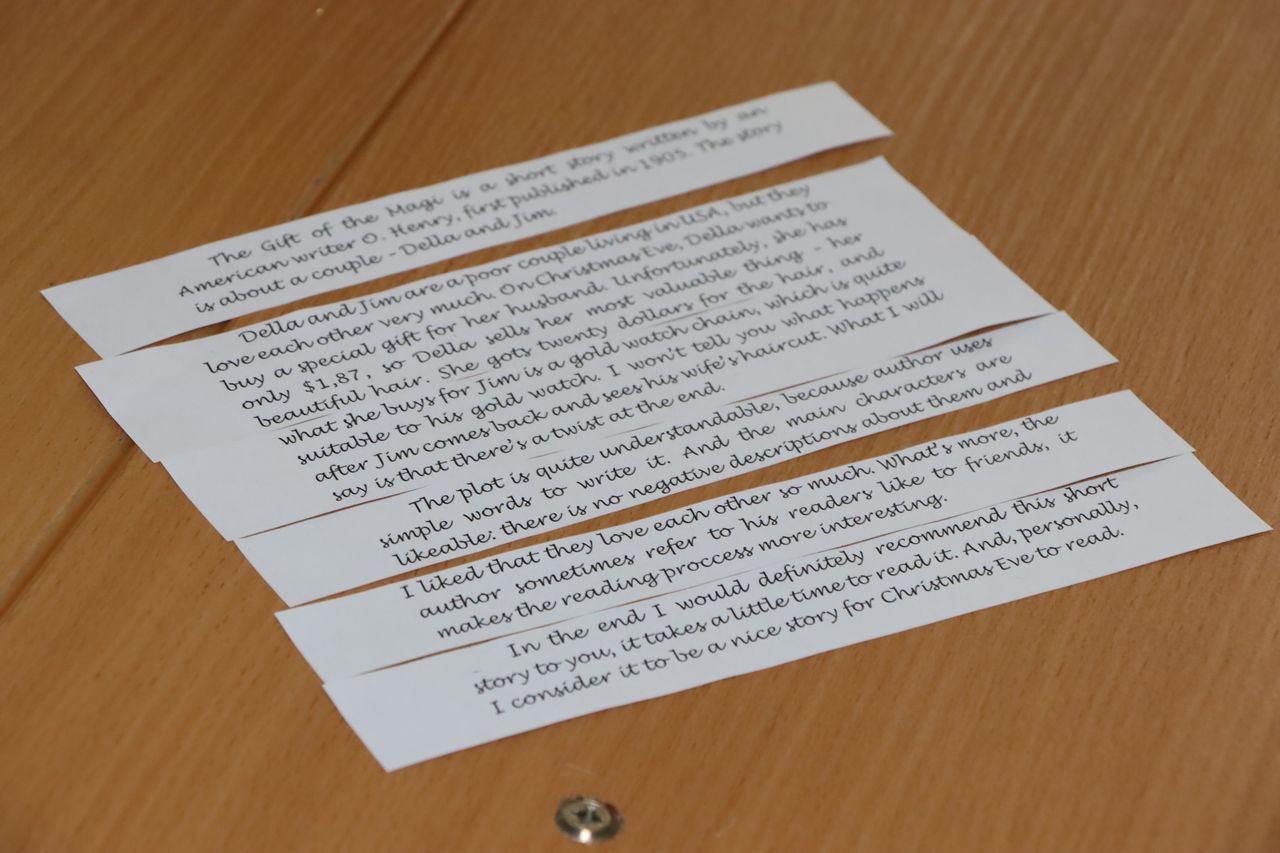 The Gift of the Magi is a short story written by an
American writer O. Henry, first published in 1905. The story
is about a couple - Della and Jim.
Della and Jim are a poor couple living in USA, but they
love each other very much. On Christmas Eve, Della wants to
buy a special gift for her husband. Unfortunately, she has
only $1,87, so Della sells her most valuable thing - her
beautiful hair. She gots twenty dollars for the hair, and
what she buys for Jim is a gold watch chain, which is quite
suitable to his gold watch. I won't tell you what happens
after Jim comes back and sees his wife's haircut. What I will
say is that there's a twist at the end.
The plot is quite understandable, because author uses
simple words to write it. And the main characters are
likeable: there is no negative descriptions about them and
I liked that they love each other so much. What's more, the
author sometimes refer to his readers like to friends, it
makes the reading proccess more interesting.
In the end I would definitely recommend this short
story to you, it takes a little time to read it. And, personally,
I consider it to be a nice story for Christmas Eve to read.